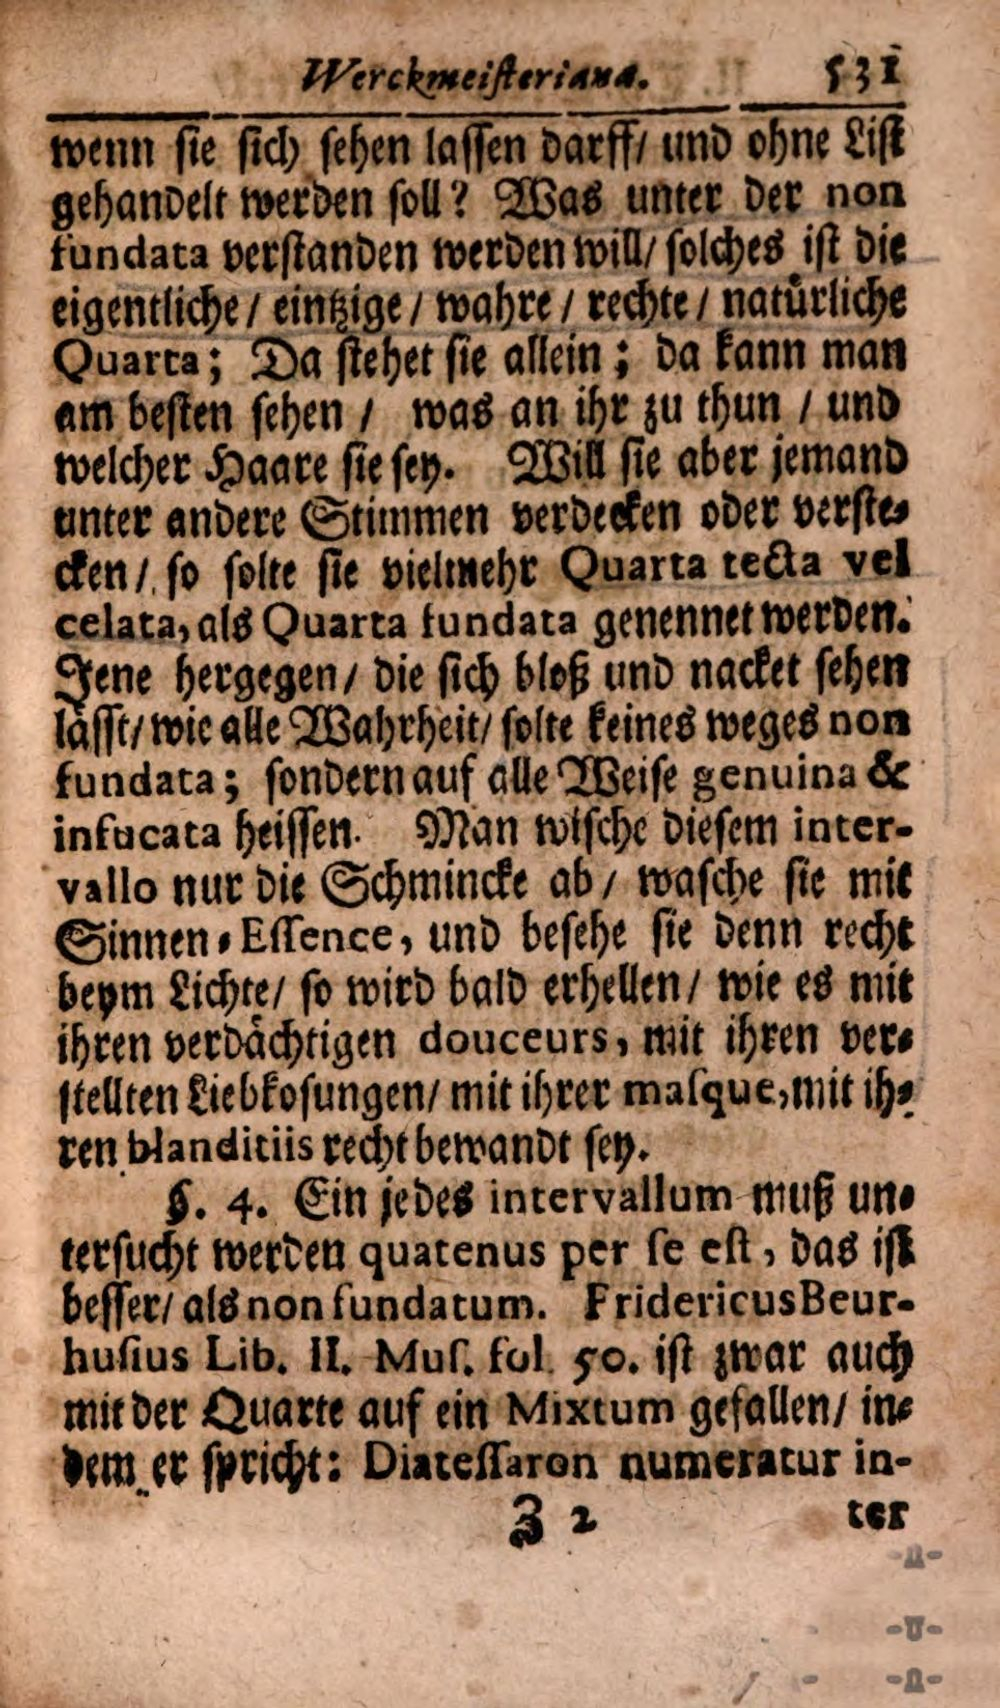 Werckmeisteriana. 531
wenn sie sich sehen lassen darff/ und ohne List
gehandelt werden soll? Was unter der non
fundata verstanden werden will/ solches ist die
eigentliche / eintzige / wahre / rechte / natürliche
Quarta; Da stehet sie allein; da kann man
am besten sehen / was an ihr zu thun / und
welcher Haare sie sey. Will sie aber jemand
unter andere Stimmen verdecken oder verste-
cken/ so solte sie vielmehr Quarta tecta vel
celata, als Quarta fundata genennet werden.
Jene hergegen/ die sich bloß und nacket sehen
lässt/ wie alle Wahrheit/ solte keines weges non
fundata; sondern auf alle Weise genuina &
infucata heissen. Man wische diesem inter-
vallo nur die Schmincke ab / wasche sie mit
Sinnen-Essence, und besehe sie denn recht
beym Lichte/ so wird bald erhellen/ wie es mit
ihren verdächtigen douceurs, mit ihren ver-
stellten Liebkosungen/ mit ihrer masque, mit ih-
ren blanditiis recht bewandt sey.
§. 4. Ein jedes intervallum muß un-
tersucht werden quatenus per se est, das ist
besser/ als non fundatum. Fridericus Beur-
husius Lib. II. Mus. fol. 50. ist zwar auch
mit der Quarte auf ein Mixtum gefallen/ in-
dem er spricht: Diatessaron numeratur in-
Z 2 ter